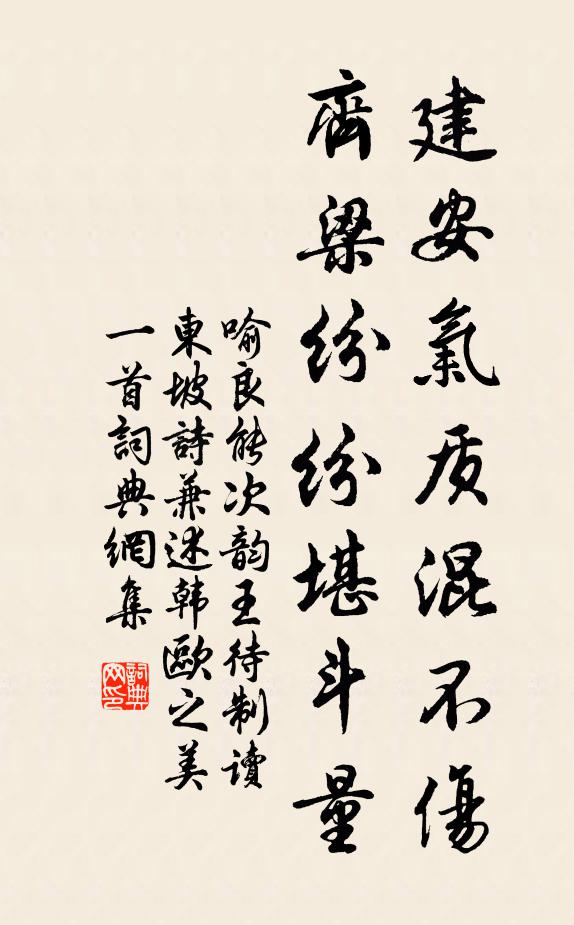 建安氣质混不傷
齊梁纷纷堪斗量
喻良能次韵王待制讀
東坡詩兼述韩歐之美
一首詞典網集
詞典网印